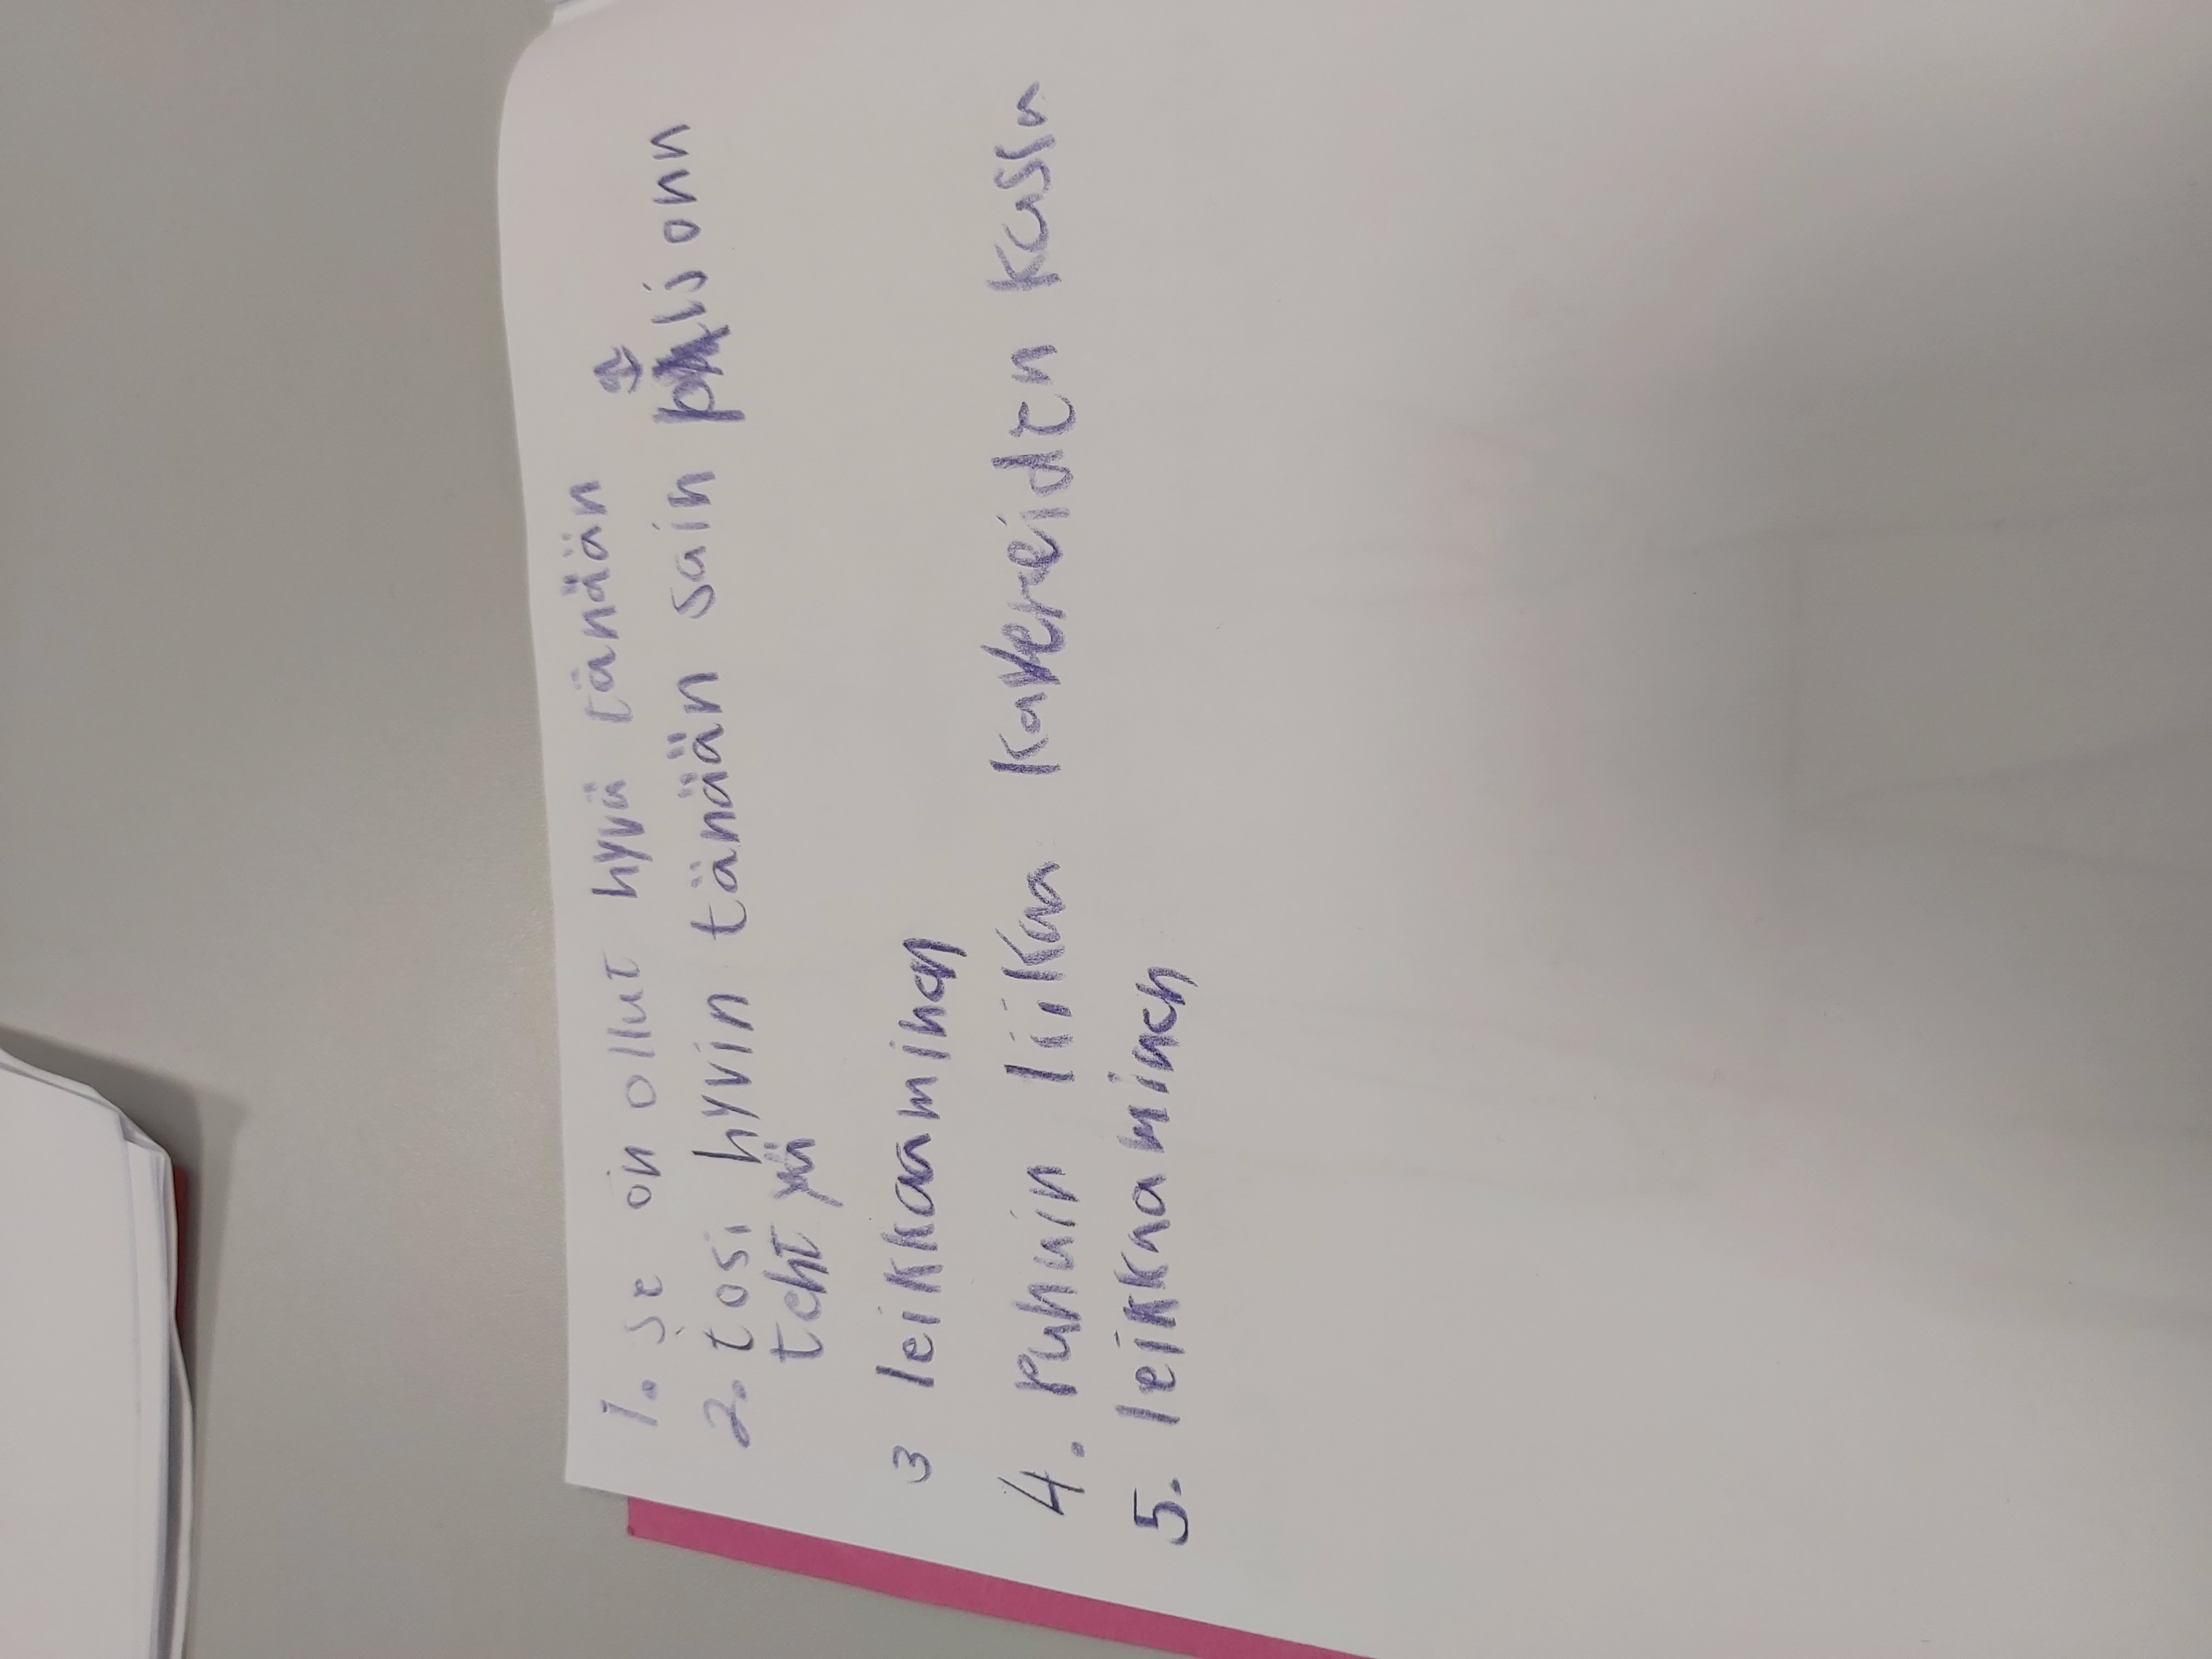 1. se on ollut hyvä tänään
2. tosi hyvin tänään sain onn
tehtyä
3 leikkaaminen
4. Puhuin liikaa kavereiden kassn
5. leikkaaminen